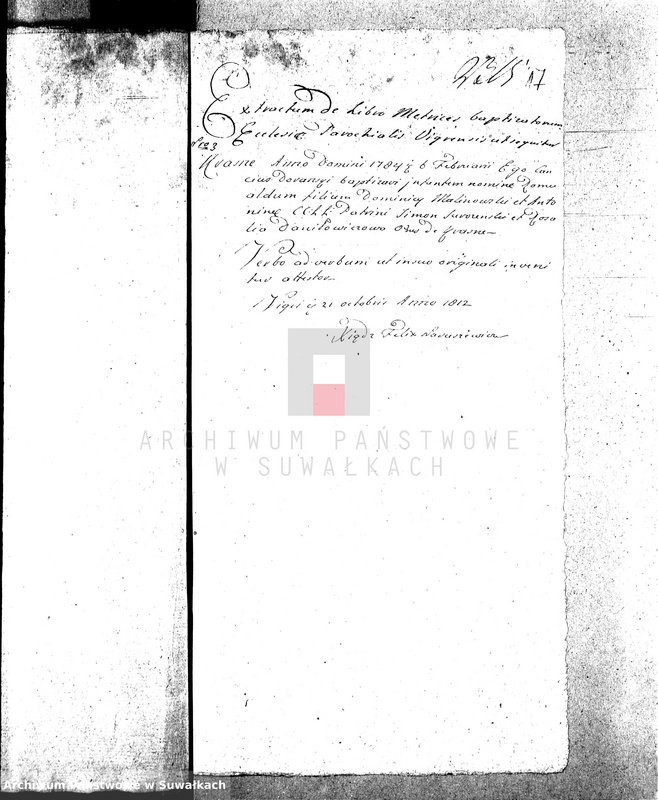 17
Extractum de Libro Metrices baptisatorum
Ecclesiæ Parochialis Vigrensis ut sequitur
Krasne Anno Domini 1784 6 Februarii Ego
baptizavi infantem nomine Romu
aldum filium Dominici Malinowski et Anto
ninæ Patrini Simon et Rosa
lia Daniłowiczowa de Krasne
Verbo ad verbum ut in suo originali inveni
tur attestor
Vigri 21 octobris Anno 1812
Xiądz Felix
ARCHIWUM PAŃSTWOWE
W SUWAŁKACH
Archiwum Państwowe w Suwałkach